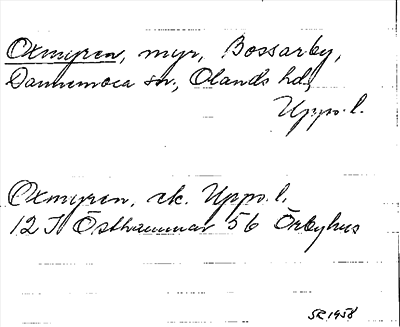 Oxmyren, myr, Bossarby,
Dannemora sn., Olands hd.,
Upps. l.
Oxmyren, ek. Upps. l.
12 I Östhammar 56 Örbyhus
SR 1958